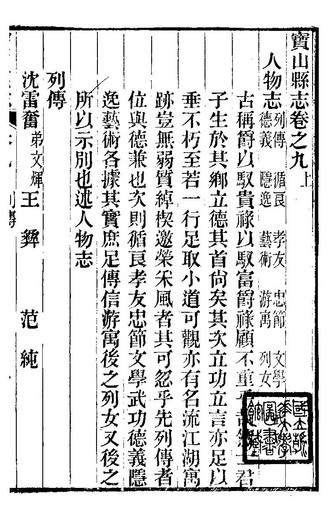 寶山縣志卷之九上
人物志 列傳 循良 孝友 忠節 文學
德義 隱逸 藝術 游寓 列女
古稱爵以馭貴祿以馭富爵祿顧不重乎君
子生於其鄉立德其首尚矣其次立功立言亦足以
垂不朽至若一行足取小道可觀亦有名流江湖寓
跡豈無弱質綽楔邀榮采風者其可忽乎先列傳者
位與德兼也次則循良孝友忠節文學武功德義隱
逸藝術各據其實庶足傳信游寓後之列女又後之
所以示別也述人物志
列傳
沈雷奮 弟文煇 王彝 范純